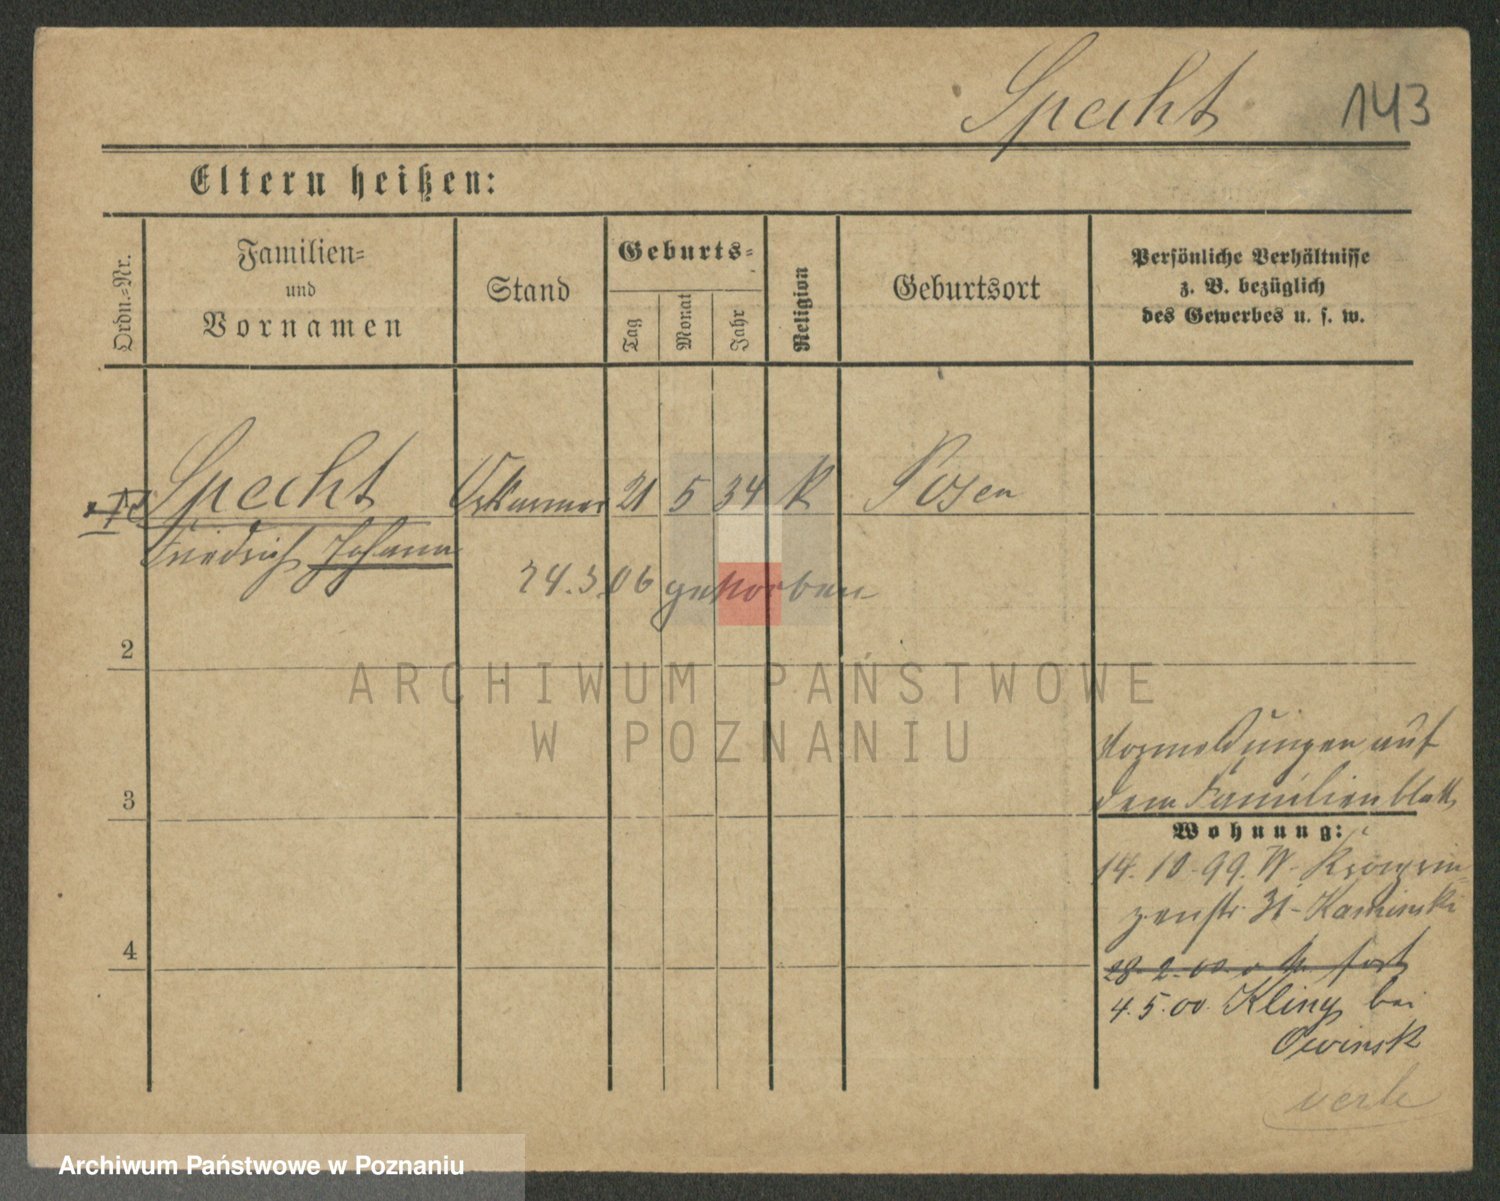 Specht 143
Eltern heißen:
Ordn.-Nr.
Familien-
und
Vornamen
Stand
Geburts-
Tag
Monat
Jahr
Religion
Geburtsort
Persönliche Verhältnisse
z. B. bezüglich
des Gewerbes u. s. w.
Specht 21 5 34 k Posen
Friedrich Johann
24.3.06 gestorben
2
ARCHIWUM PAŃSTWOWE
W POZNANIU
3
Vormeldungen auf
dem Familienblatt
Wohnung:
14.10.99. W. Kronprin-
zenstr. 31 - Kaminski
4
28.2.00. fort
4.5.00. Kling bei
Owinsk
verh
Archiwum Państwowe w Poznaniu